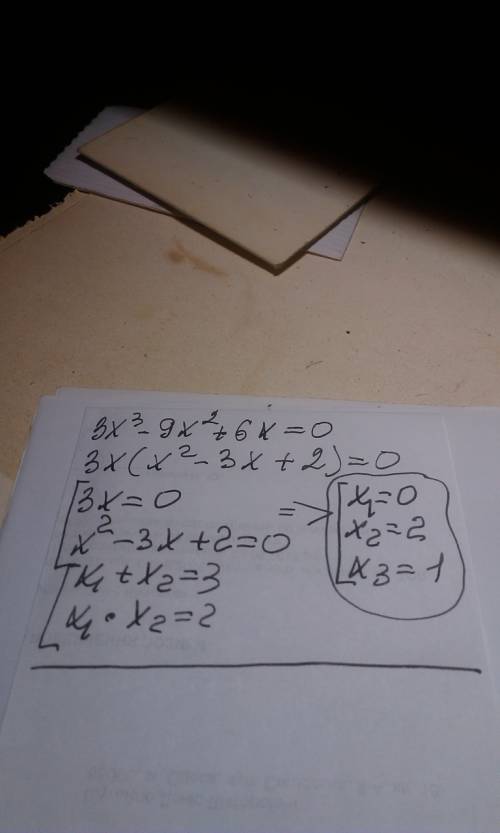 3x³-9x²+6x=0
3x(x²-3x+2)=0
[3x=0
x²-3x+2=0
=> [x₁=0
x₂=2
x₃=1
[x₁+x₂=3
x₁·x₂=2